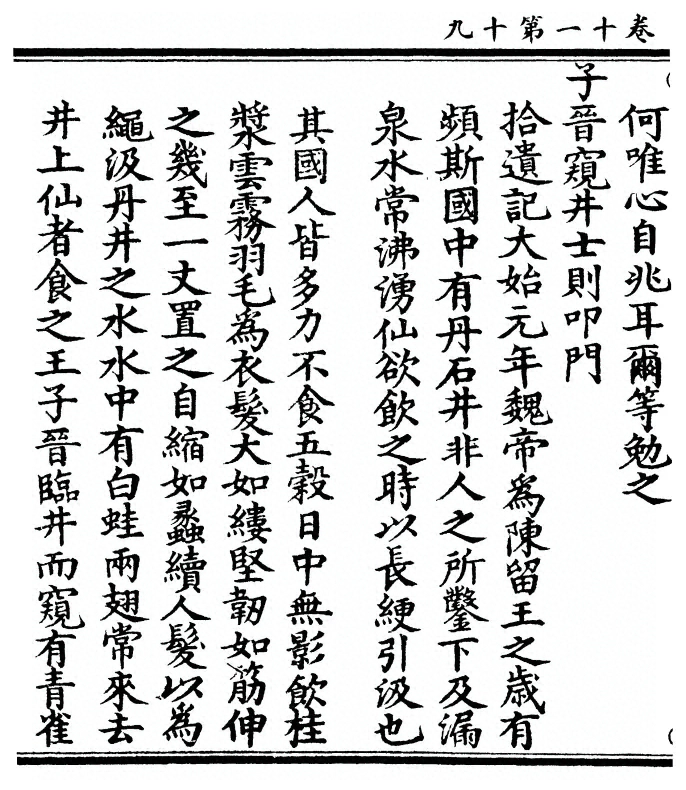 卷十一第十九
何唯心自兆耳爾等勉之
子晉窺井士則叩門
拾遺記大始元年魏帝為陳留王之歲有
頻斯國中有丹石井非人之所鑿下及漏
泉水常沸湧仙欲飲之時以長綆引汲也
其國人皆多力不食五穀日中無影飲桂
漿雲霧羽毛為衣髮大如縷堅韌如筋伸
之幾至一丈置之自縮如蠡續人髮以為
繩汲丹井之水水中有白蛙兩翅常來去
井上仙者食之王子晉臨井而窺有青雀